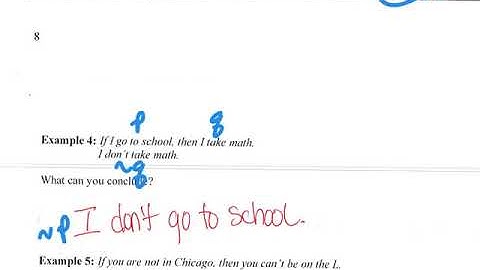 8
p q
Example 4: If I go to school, then I take math.
I don't take math.
~q
What can you conclude?
~p I don't go to school.
Example 5: If you are not in Chicago, then you can't be on the L.